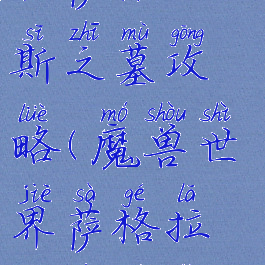 sī zhī mù gōng
斯之墓攻
lüè mó shòu shì
略(魔兽世
jiè sà gé lā
界萨格拉